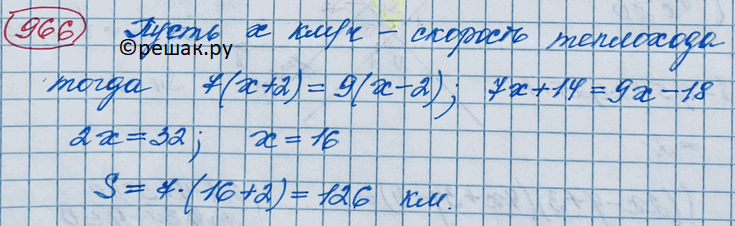 966 Пусть x км/ч – скорость теплохода
©решак.ру
тогда 7(x+2)=9(x-2); 7x+14=9x-18
2x=32; x=16
S=7·(16+2)=126 км.